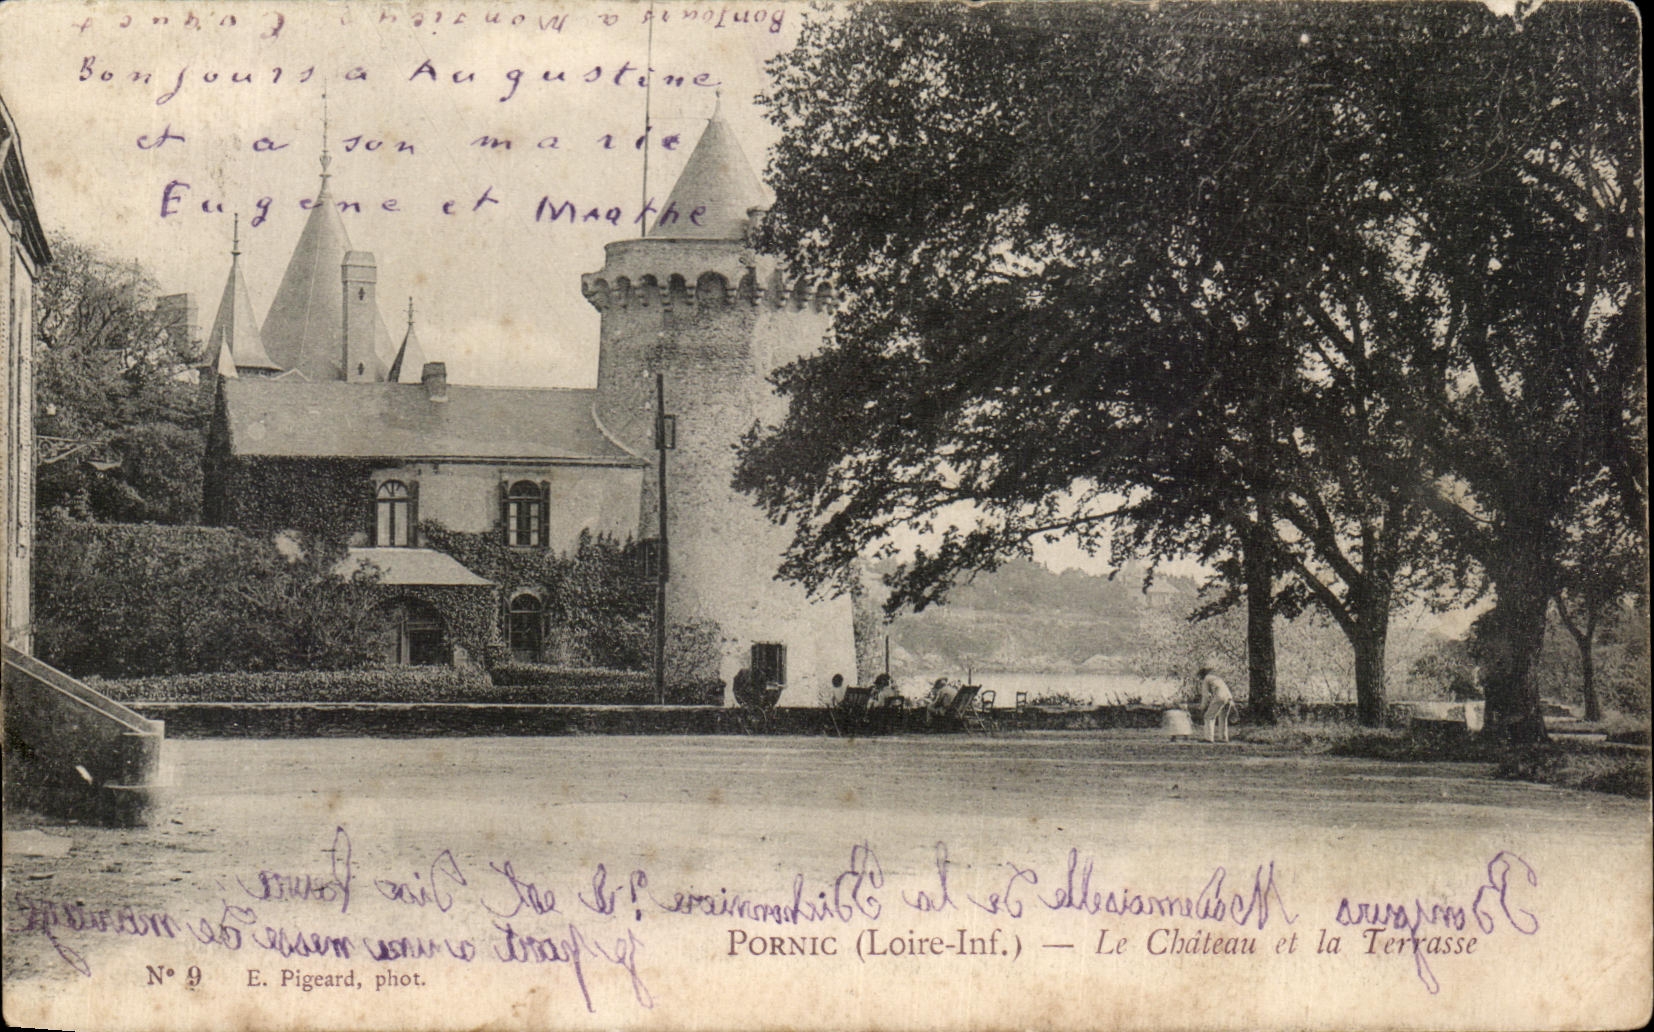 Bonjours a Monsieur
Bonjours a Augustine
et a son marie
Eugene et Marthe
Bonjours Mademoiselle De la Bichonniere ? il est Dix heure
je part a une messe De mariage
PORNIC (Loire-Inf.) — Le Château et la Terrasse
N° 9 E. Pigeard, phot.